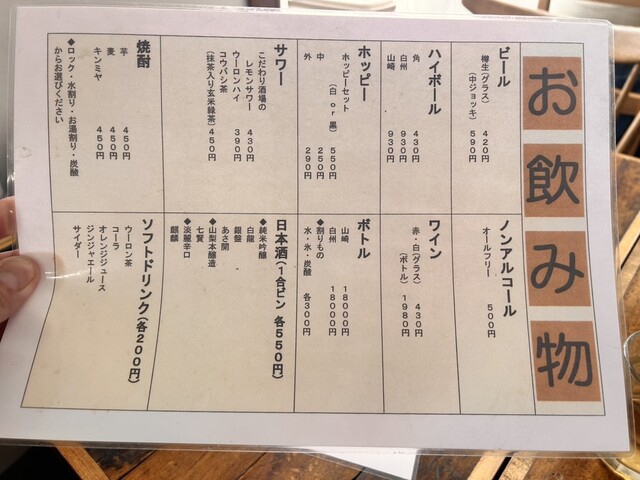 お飲み物
ビール
樽生(グラス) 420円
(中ジョッキ) 590円
ハイボール
角 430円
白州 930円
山崎 930円
ホッピー
ホッピーセット 550円
(白 or 黒)
中 250円
外 290円
サワー
こだわり酒場の
レモンサワー 430円
ウーロンハイ 390円
コウバシ茶
(抹茶入り玄米緑茶) 450円
焼酎
芋 450円
麦 450円
キンミヤ 450円
◆ロック・水割り・お湯割り・炭酸
からお選びください
ノンアルコール
オールフリー 500円
ワイン
赤・白(グラス) 430円
(ボトル) 1980円
ボトル
山崎 18000円
白州 18000円
◆割りもの
水・氷・炭酸 各300円
日本酒(1合ビン 各550円)
◆純米吟醸
白龍
銀盤
あさ開
◆山梨本醸造
七賢
◆淡麗辛口
麒麟
ソフトドリンク(各200円)
ウーロン茶
コーラ
オレンジジュース
ジンジャエール
サイダー